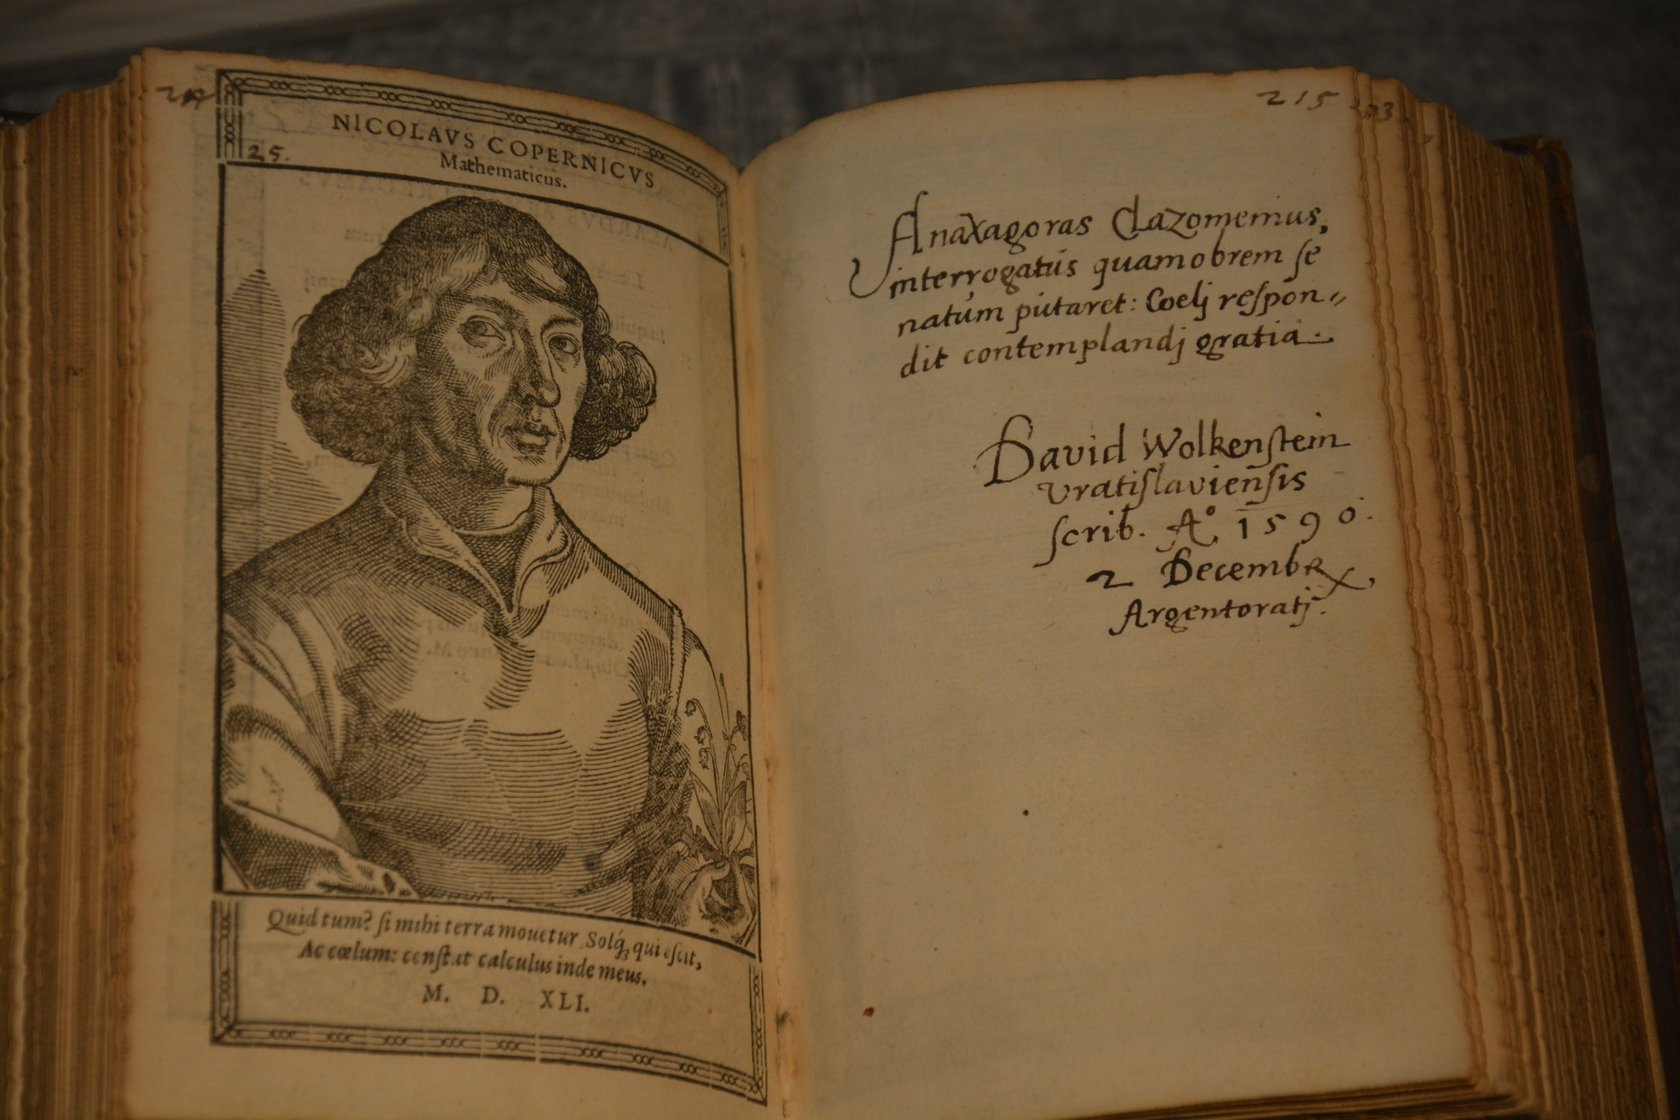 25.
NICOLAVS COPERNICVS
Mathematicus.
Quid tum? ſi mihi terra mouetur, Solq́ꝫ quieſcit,
Ac cœlum: conſtat calculus inde meus.
M. D. XLI.
215
Anaxagoras Clazomenius,
interrogatus quamobrem ſe
natum putaret: Coelj reſpon⸗
dit contemplandj gratia.
David Wolkenſtein
vratiſlavienſis
ſcrib. A° 1590.
2 Decembr.
Argentoratj.